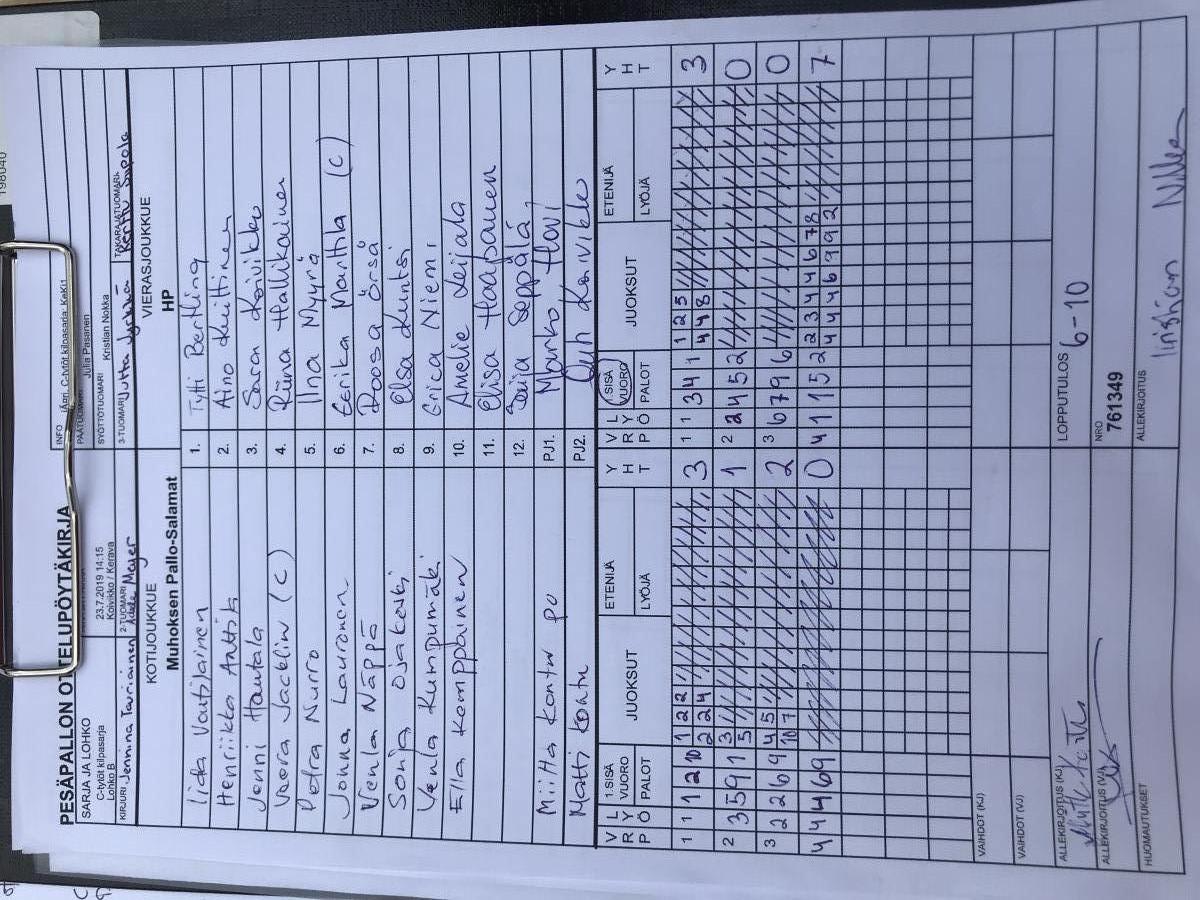 198040
PESÄPALLON OTTELUPÖYTÄKIRJA
SARJA JA LOHKO
C-tytöt kilpasarja
Lohko B
23.7.2019 14:15
Koivikko / Kerava
INFO
C-tytöt kilpasarja: KeKi1
PÄÄTUOMARI Julia Pasanen
SYÖTTÖTUOMARI Kristian Nokka
KIRJURI Jennina
2-TUOMARI Meyer
3-TUOMARI Jutta
TAKARAJATUOMARI Kerttu
KOTIJOUKKUE
Muhoksen Pallo-Salamat
VIERASJOUKKUE
HP
Iida Voutilainen 1. Tytti Bertling
Henriikka Anttila 2. Aino Kuittinen
Jenni Hautala 3. Sara Koivikko
Veera Jacklin (C) 4. Riina Hallikainen
Petra Nurro 5. Iina Myyrä
Jonna Lauronen 6. Eerika Marttila (C)
Venla Näppä 7. Roosa Örså
Sonja Ojakoski 8. Elsa Kuntsi
Venla Kumpumäki 9. Erica Niemi
Ella Komppainen 10. Amelie Leijala
11. Elisa Haapanen
12. Seppälä
Miitta Konttu PJ1. Marko Hovi
Matti Konttu PJ2. Koivikko
V R P L Y Ö 1.SISÄ VUORO PALOT JUOKSUT ETENIJÄ LYÖJÄ Y H T V R P L Y Ö 1.SISÄ VUORO PALOT JUOKSUT ETENIJÄ LYÖJÄ Y H T
1 1 1 2 10 1 2 2 3 1 1 3 4 1 1 2 5 3
2 2 4 4 4 8
2 3 5 9 1 3 1 2 2 4 5 2 0
5
3 2 2 6 9 4 5 2 3 6 7 9 6 0
10 7
4 4 4 6 9 0 4 1 1 5 2 2 3 4 4 6 7 8 7
4 4 6 9 9 2
VAIHDOT (KJ)
VAIHDOT (VJ)
ALLEKIRJOITUS (KJ)
LOPPUTULOS 6-10
ALLEKIRJOITUS (VJ)
NRO
761349
HUOMAUTUKSET
ALLEKIRJOITUS